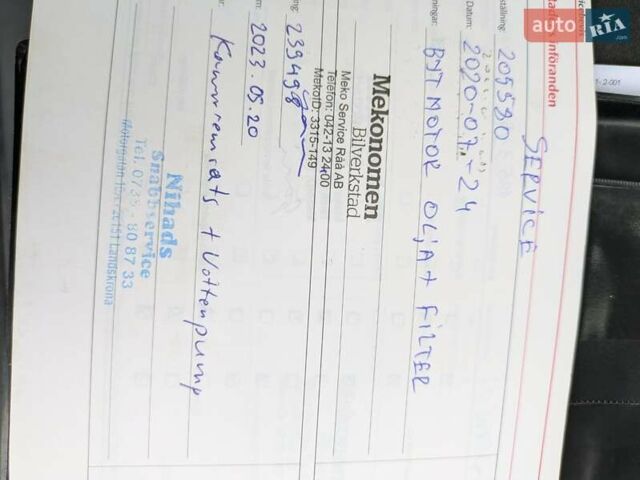 auto RIA
.com
införanden
1-2-001
SERVICE
209580
Datum:
2020-07-24
BYT MOTOR OLJA + FILTER
Mekonomen
Bilverkstad
Meko Service Råå AB
Telefon: 042-13 24 00
MekoID: 3315-149
239498
2023.05.20
Kamremsats + Vattenpump
Nihads
Snabbservice
Tel. 0735 - 80 87 33
26151 Landskrona